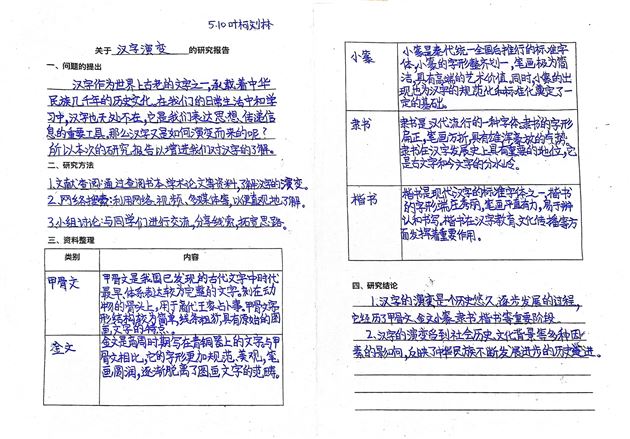 5.10 叶柯刘林
关于 汉字演变 的研究报告
一、问题的提出
汉字作为世界上古老的文字之一,承载着中华
民族几千年的历史文化。在我们的日常生活中和学
习中,汉字也无处不在,它是我们表达思想、传递信
息的重要工具。那么汉字又是如何演变而来的呢?
所以本次的研究报告以增进我们对汉字的了解。
二、研究方法
1.文献查阅:通过查阅书本、学术论文等资料,了解汉字的演变。
2.网络搜索:利用网络、视频、多媒体等,以便直观地了解。
3.小组讨论:与同学们进行交流,分享线索,拓宽思路。
三、资料整理
类别 内容
甲骨文
甲骨文是我国已发现的古代文字中时代
最早、体系表达较为完整的文字。刻在动
物的骨头上,用于商代王室占卜事。甲骨文字
形结构较为简单,线条粗犷,具有原始的图
画文字的特点。
金文
金文是商周时期写在青铜器上的文字与甲
骨文相比,它的字形更加规范、美观,笔
画圆润,逐渐脱离了图画文字的范畴。
小篆
小篆是秦代统一全国后推行的标准字
体,小篆的字形整齐划一,笔画极为简
洁,具有高端的艺术价值,同时,小篆的出
现也为汉字的规范化和标准化奠定了一
定的基础。
隶书
隶书是汉代流行的一种字体。隶书的字形
扁正,笔画方折,具有雄浑豪放的气势。
隶书在汉字发展史上具有重要的地位,它
是古文字和今文字的分水岭。
楷书
楷书是现代汉字的标准字体之一,楷书
的字形端庄秀丽,笔画平直有力,易于辨
认和书写。楷书在汉字教育、文化传播等方
面发挥着重要作用。
四、研究结论
1.汉字的演变是个历史悠久、逐步发展的过程,
它经历了甲骨文、金文、小篆、隶书、楷书等重要阶段。
2.汉字的演变受到社会历史、文化背景等多种因
素的影响,反映了中华民族不断发展进步的历史演进。